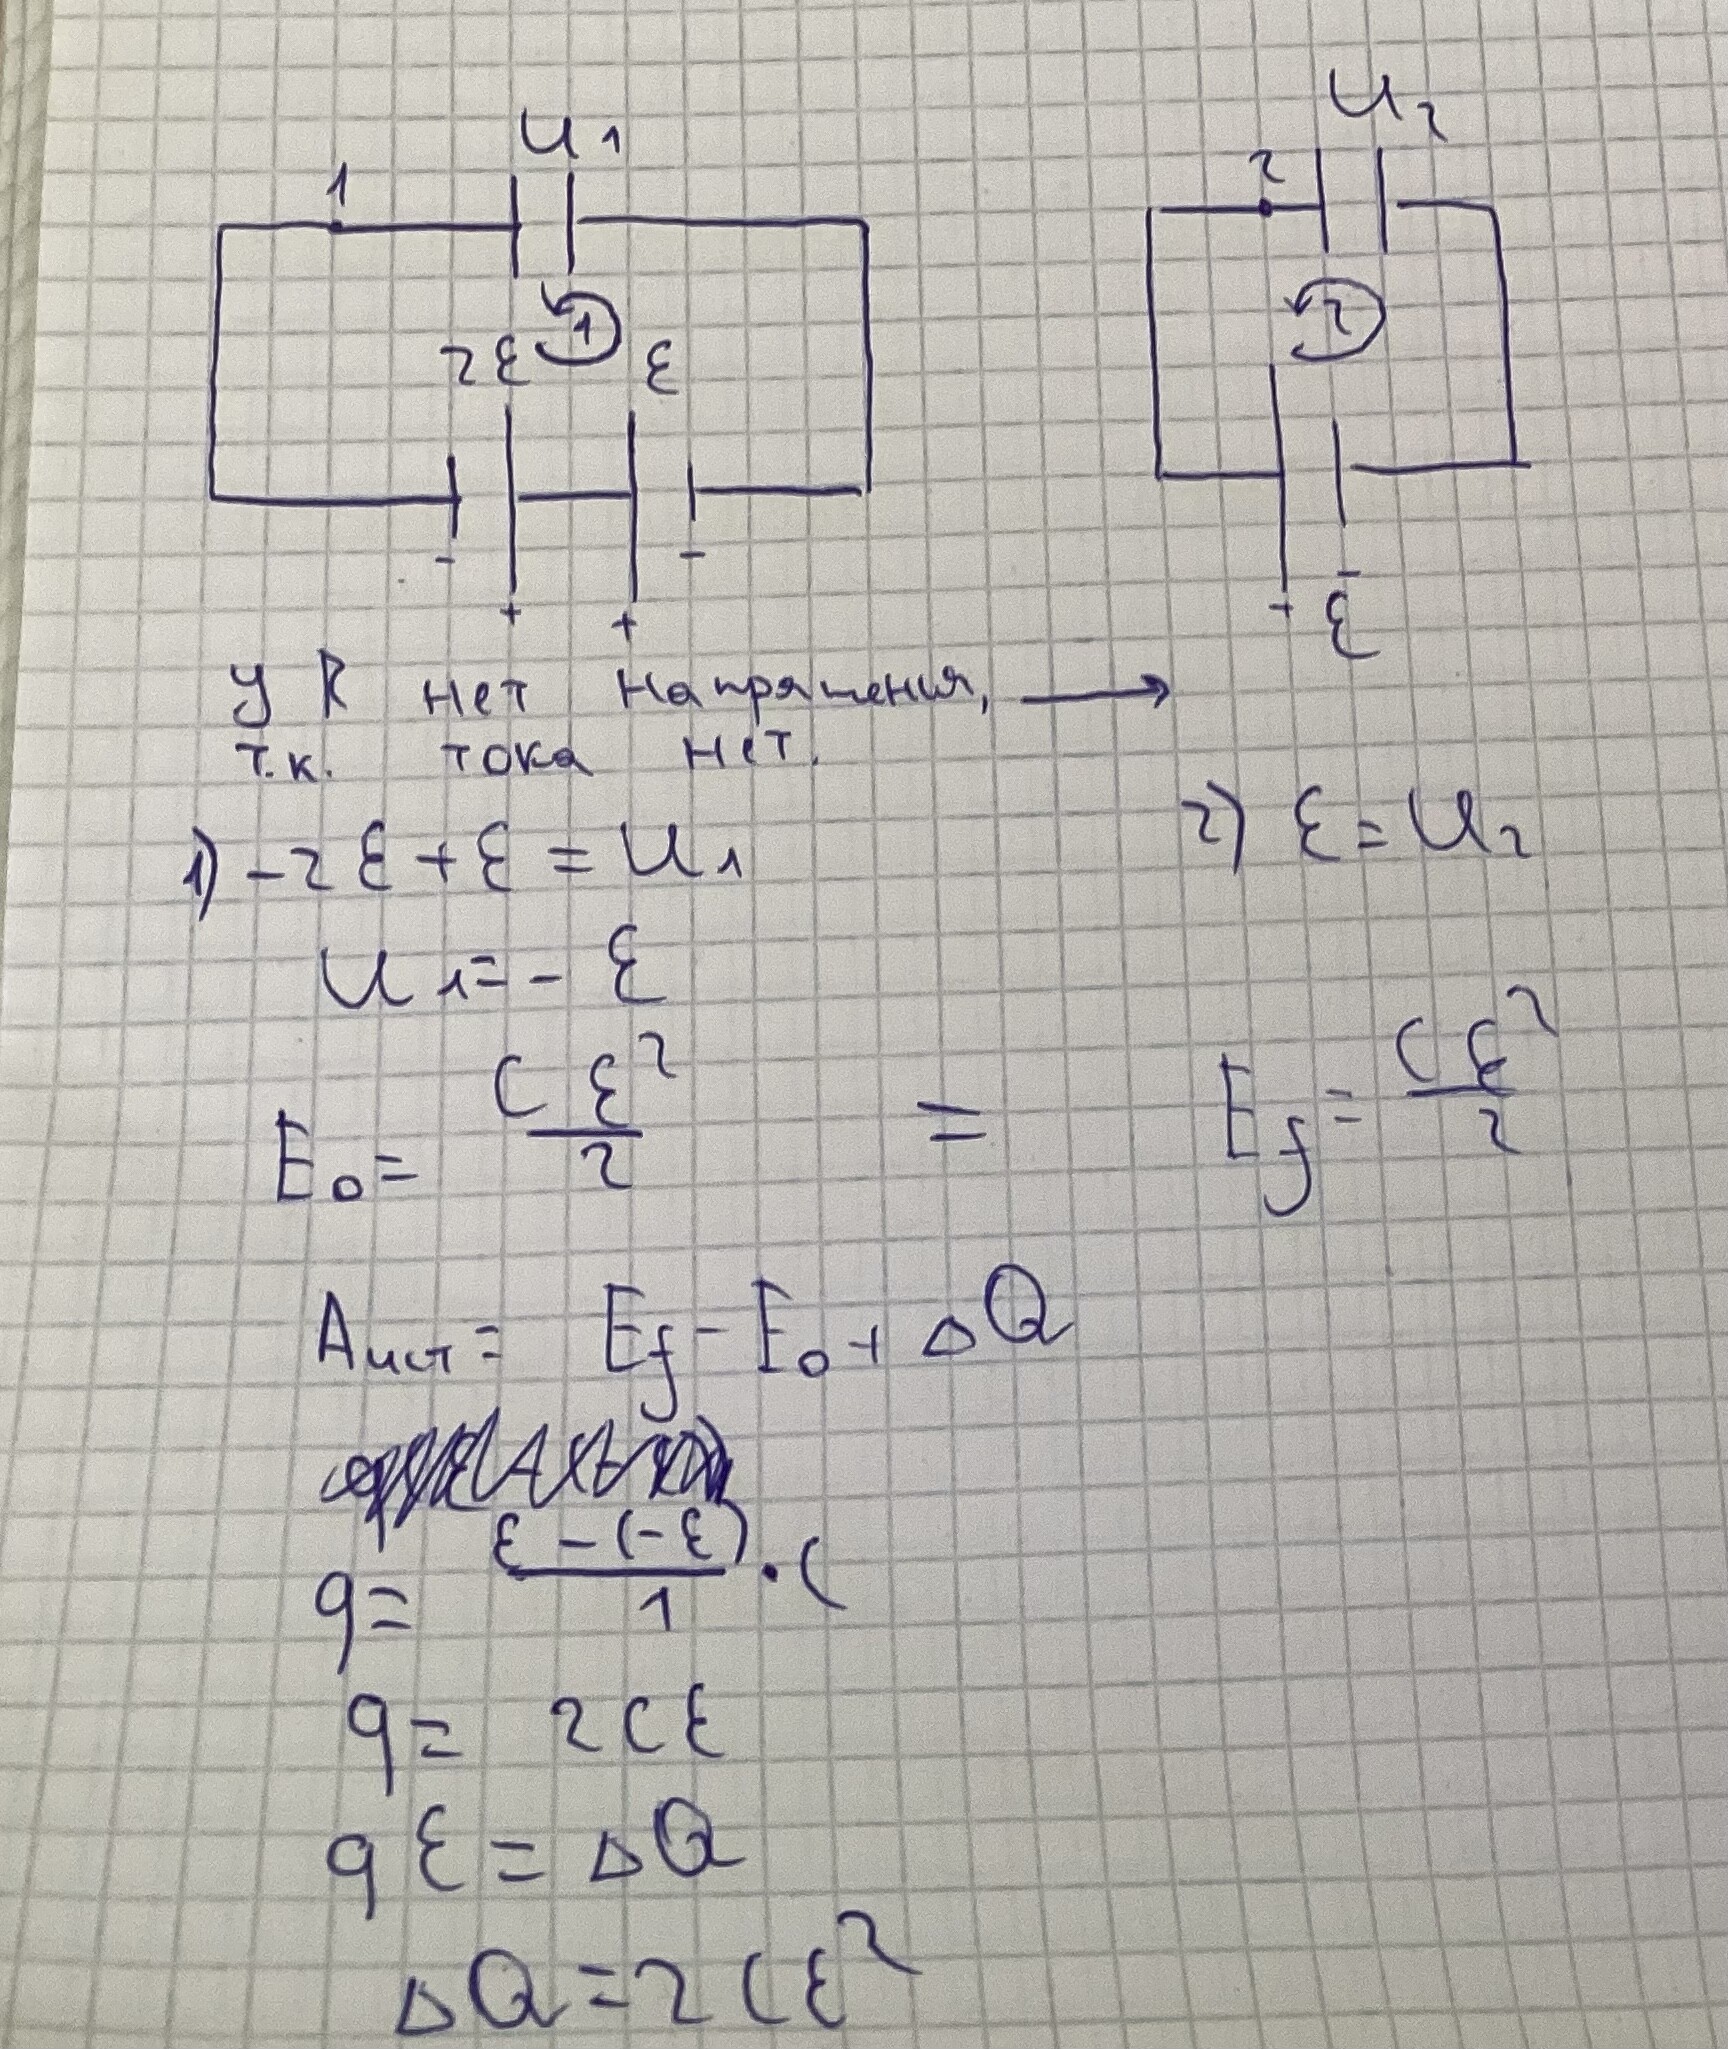 U₁
U₂
1
2
1
2
2ℰ
ℰ
- + + -
+ -
ℰ
У R нет напряжения, →
т.к. тока нет.
1) -2ℰ + ℰ = U₁
2) ℰ = U₂
U₁ = -ℰ
E₀ = Cℰ²/2 = E_f = Cℰ²/2
Aист = E_f - E₀ + ΔQ
q = (ℰ - (-ℰ))/1 · C
q = 2Cℰ
qℰ = ΔQ
ΔQ = 2Cℰ²